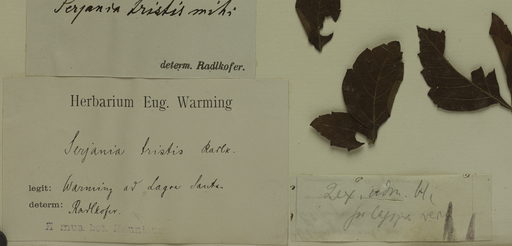 Serjania tristis mihi
determ. Radlkofer.
Herbarium Eug. Warming
Serjania tristis Radlk.
legit: Warming ad Lagoa Santa
determ: Radlkofer.
E mus. bot.
2ex.